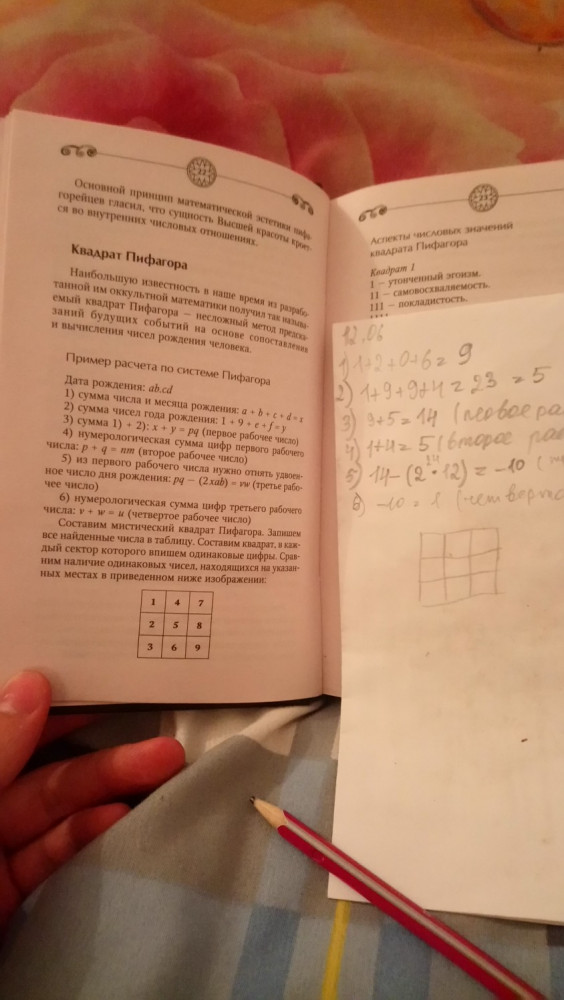 22
Основной принцип математической эстетики пифа-
горейцев гласил, что сущность Высшей красоты кроет-
ся во внутренних числовых отношениях.
Квадрат Пифагора
Наибольшую известность в наше время из разрабо-
танной им оккультной математики получил так называ-
емый квадрат Пифагора — несложный метод предска-
заний будущих событий на основе сопоставления
и вычисления чисел рождения человека.
Пример расчета по системе Пифагора
Дата рождения: ab.cd
1) сумма числа и месяца рождения: a + b + c + d = x
2) сумма чисел года рождения: 1 + 9 + e + f = y
3) сумма 1) + 2): x + y = pq (первое рабочее число)
4) нумерологическая сумма цифр первого рабочего
числа: p + q = nm (второе рабочее число)
5) из первого рабочего числа нужно отнять удвоен-
ное число дня рождения: pq — (2xab) = vw (третье рабо-
чее число)
6) нумерологическая сумма цифр третьего рабочего
числа: v + w = u (четвертое рабочее число)
Составим мистический квадрат Пифагора. Запишем
все найденные числа в таблицу. Составим квадрат, в каж-
дый сектор которого впишем одинаковые цифры. Срав-
ним наличие одинаковых чисел, находящихся на указан-
ных местах в приведенном ниже изображении:
1 4 7
2 5 8
3 6 9
23
Аспекты числовых значений
квадрата Пифагора
Квадрат 1
1 — утонченный эгоизм.
11 — самовосхваляемость.
111 — покладистость.
12.06
1) 1+2+0+6= 9
2) 1+9+9+4= 23 = 5
3) 9+5= 14 (первое ра
4) 1+4= 5 (второе раб
5) 14-(2*12)= -10
6) -10 = 1 (четверто